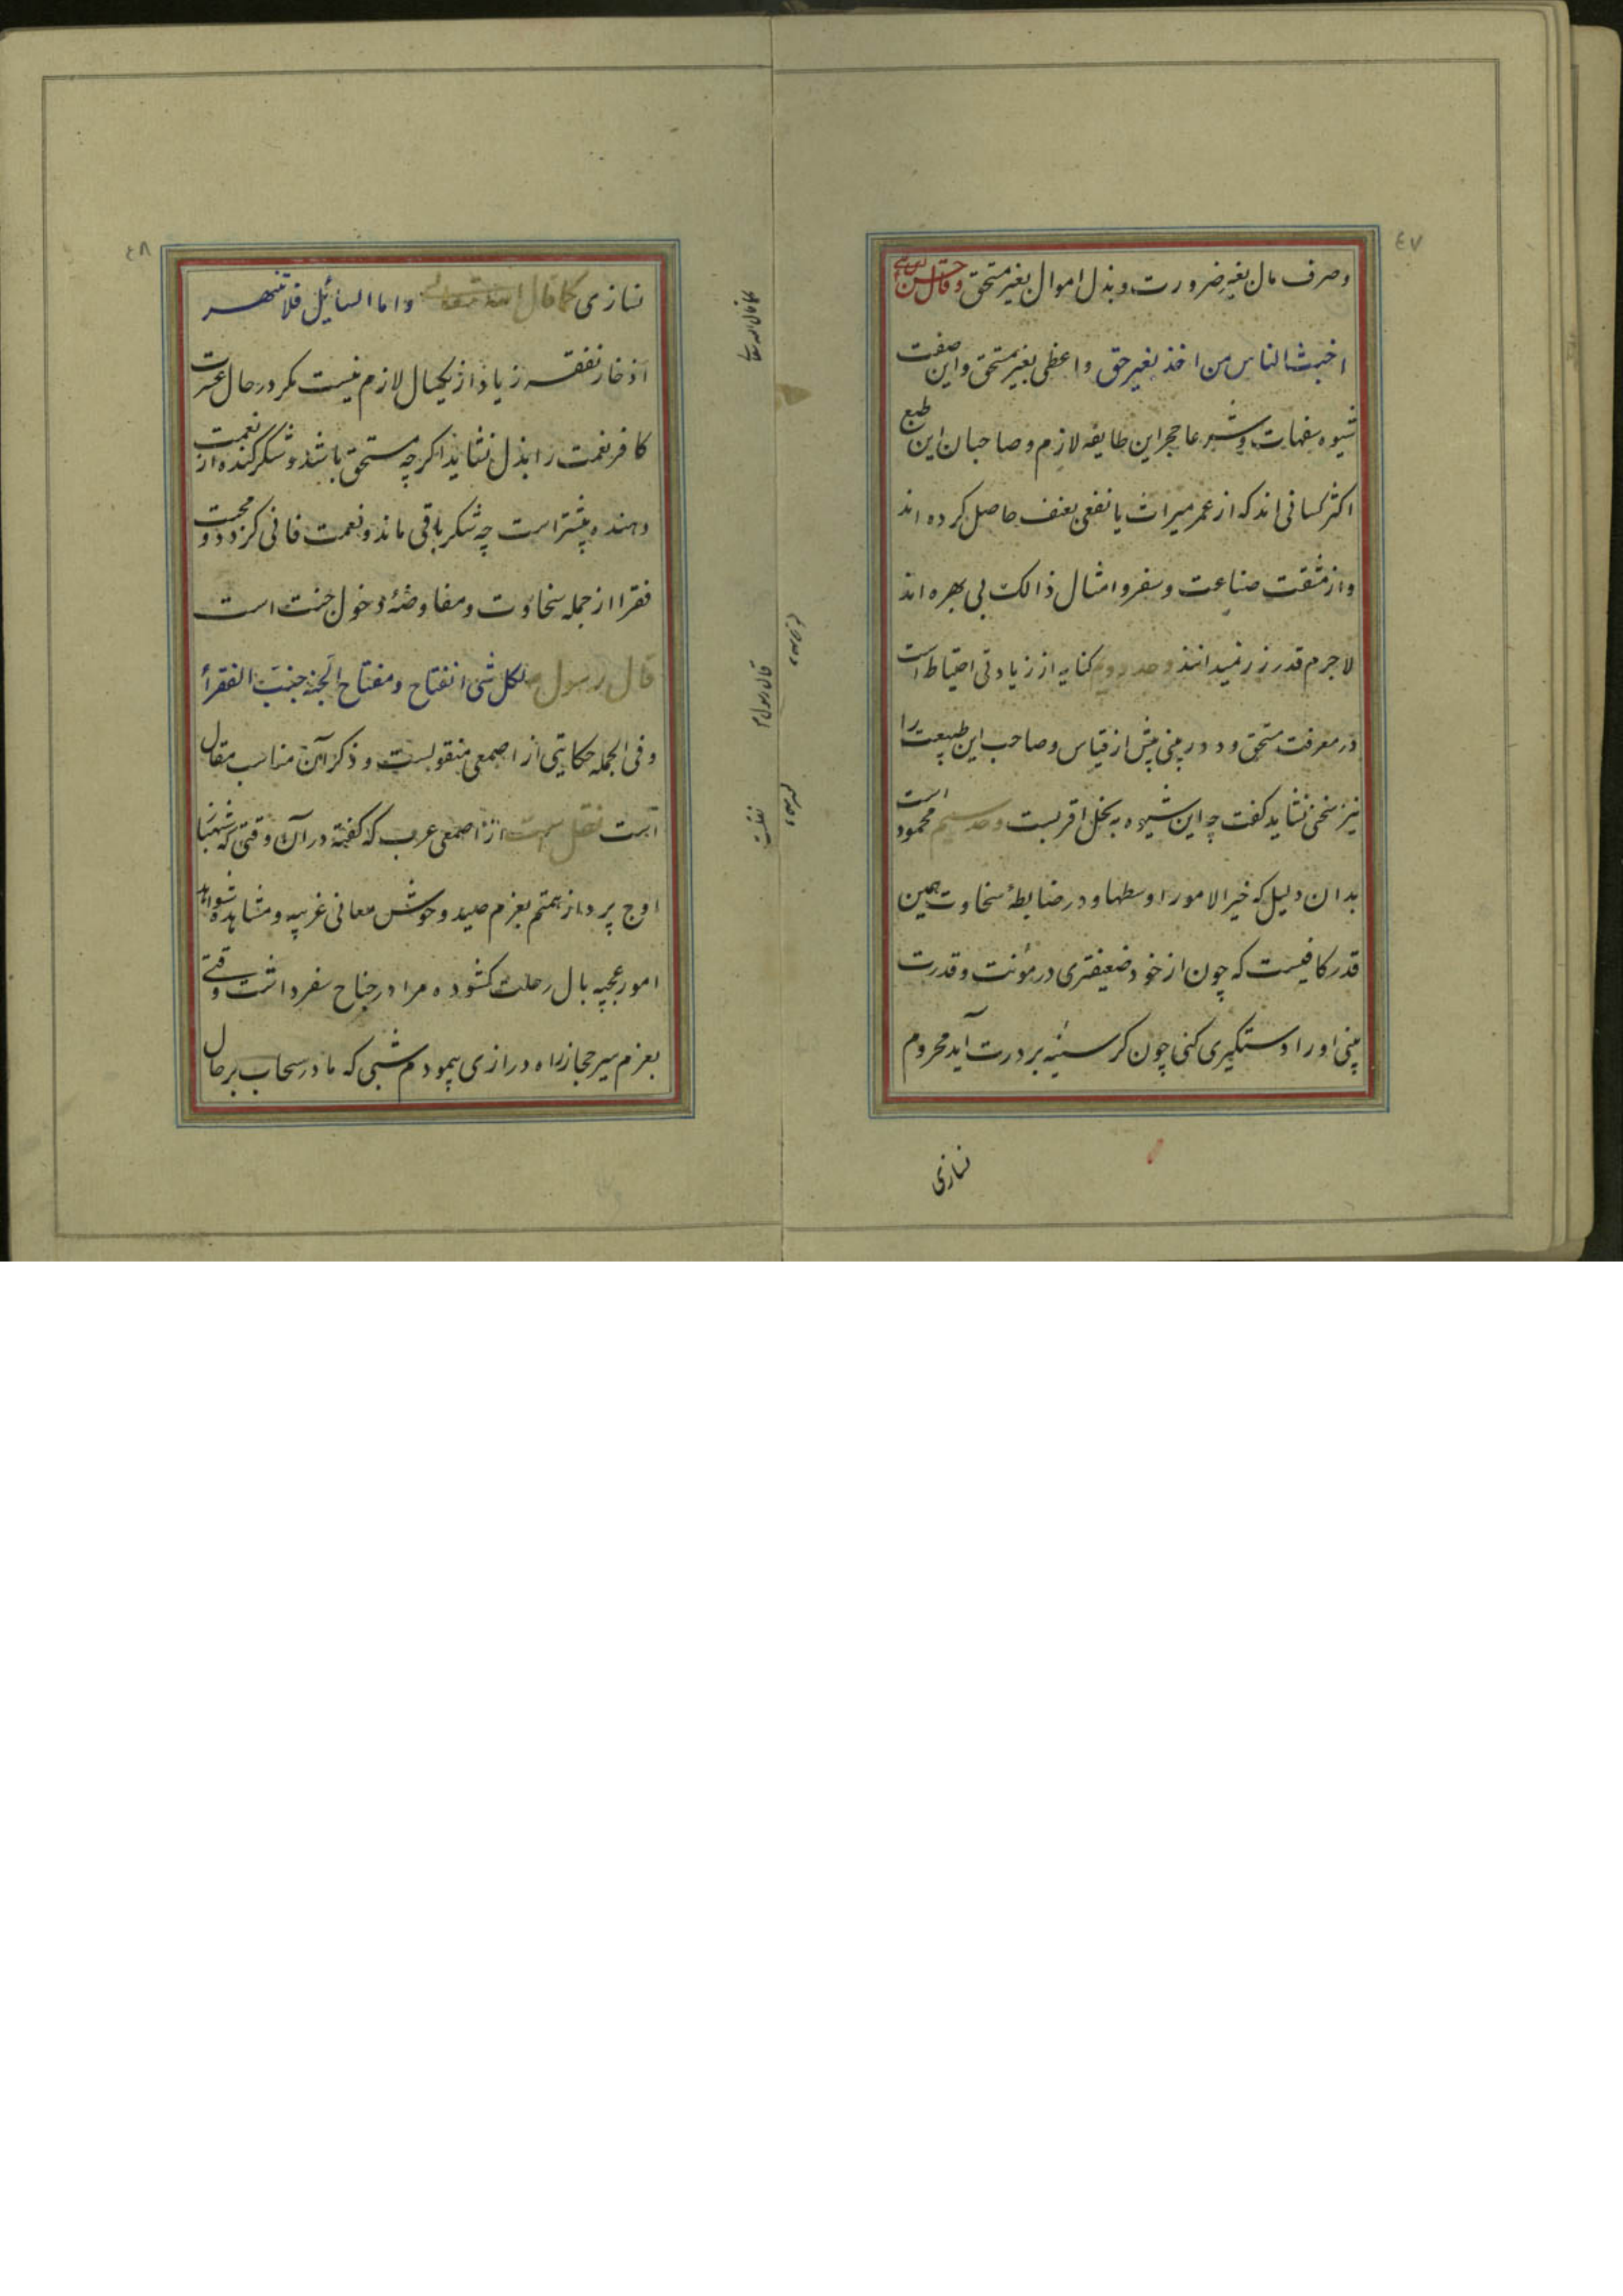 ٤٧
وصرف مال بغیر ضرورت و بذل اموال بغیر مستحق وقال حسن
اخبث الناس من اخذ بغیر حق واعطی بغیر مستحق واین صفت
شیوه سفهاست و شرعا حجر این طایفه لازم و صاحبان این طبع
اکثر کسانی اند که از عمر میراث یا نفعی بعنف حاصل کرده اند
واز مشقت صناعت و سفر و امثال ذالک بی بهره اند
لا جرم قدر زر نمیدانند و حد دویم کنایه از زیادتی احتیاط است
در معرفت مستحق و دوربینی بیش از قیاس و صاحب این طبیعت را
نیز سخی نشاید گفت چه این شیوه به بخل اقربست و حد سیم محمود است
بدان دلیل که خیر الامور اوسطها و در ضابطهٔ سخاوت همین
قدر کافیست که چون از خود ضعیفتری در مؤنت و قدرت
بینی او را دستگیری کنی چون گرسنه بر درت آید محروم
نسازی
٤٨
نسازی کما قال الله تعالی واما السائل فلا تنهر
اذخار نفقه زیاد از یکسال لازم نیست مکر در حال عسرت
کافر نعمت را بذل نشاید اکرچه مستحق باشد و شکر کننده از نعمت
دهنده بیشتر است چه شکر باقی ماند و نعمت فانی کردد و محبت
فقرا از جمله سخاوت و مفاوضهٔ دخول جنت است
قال رسول لکل شی انفتاح و مفتاح الجنة حبّ الفقرأ
وفی الجمله حکایتی از اصمعی منقولست و ذکر آن مناسب مقال
است نقل است از اصمعی عرب که گفته در آن وقتی که شهباز
اوج پرداز همتم بعزم صید وحوش معانی غریبه و مشاهده شواهد
امور عجیبه بال رحلت کشوده مرا در جناح سفر داشت وقتی
بعزم سیر حجاز راه درازی پیمودم شبی که مادر سحاب بر حال
کما قال الله تعالی
قال رسول م
نقلست